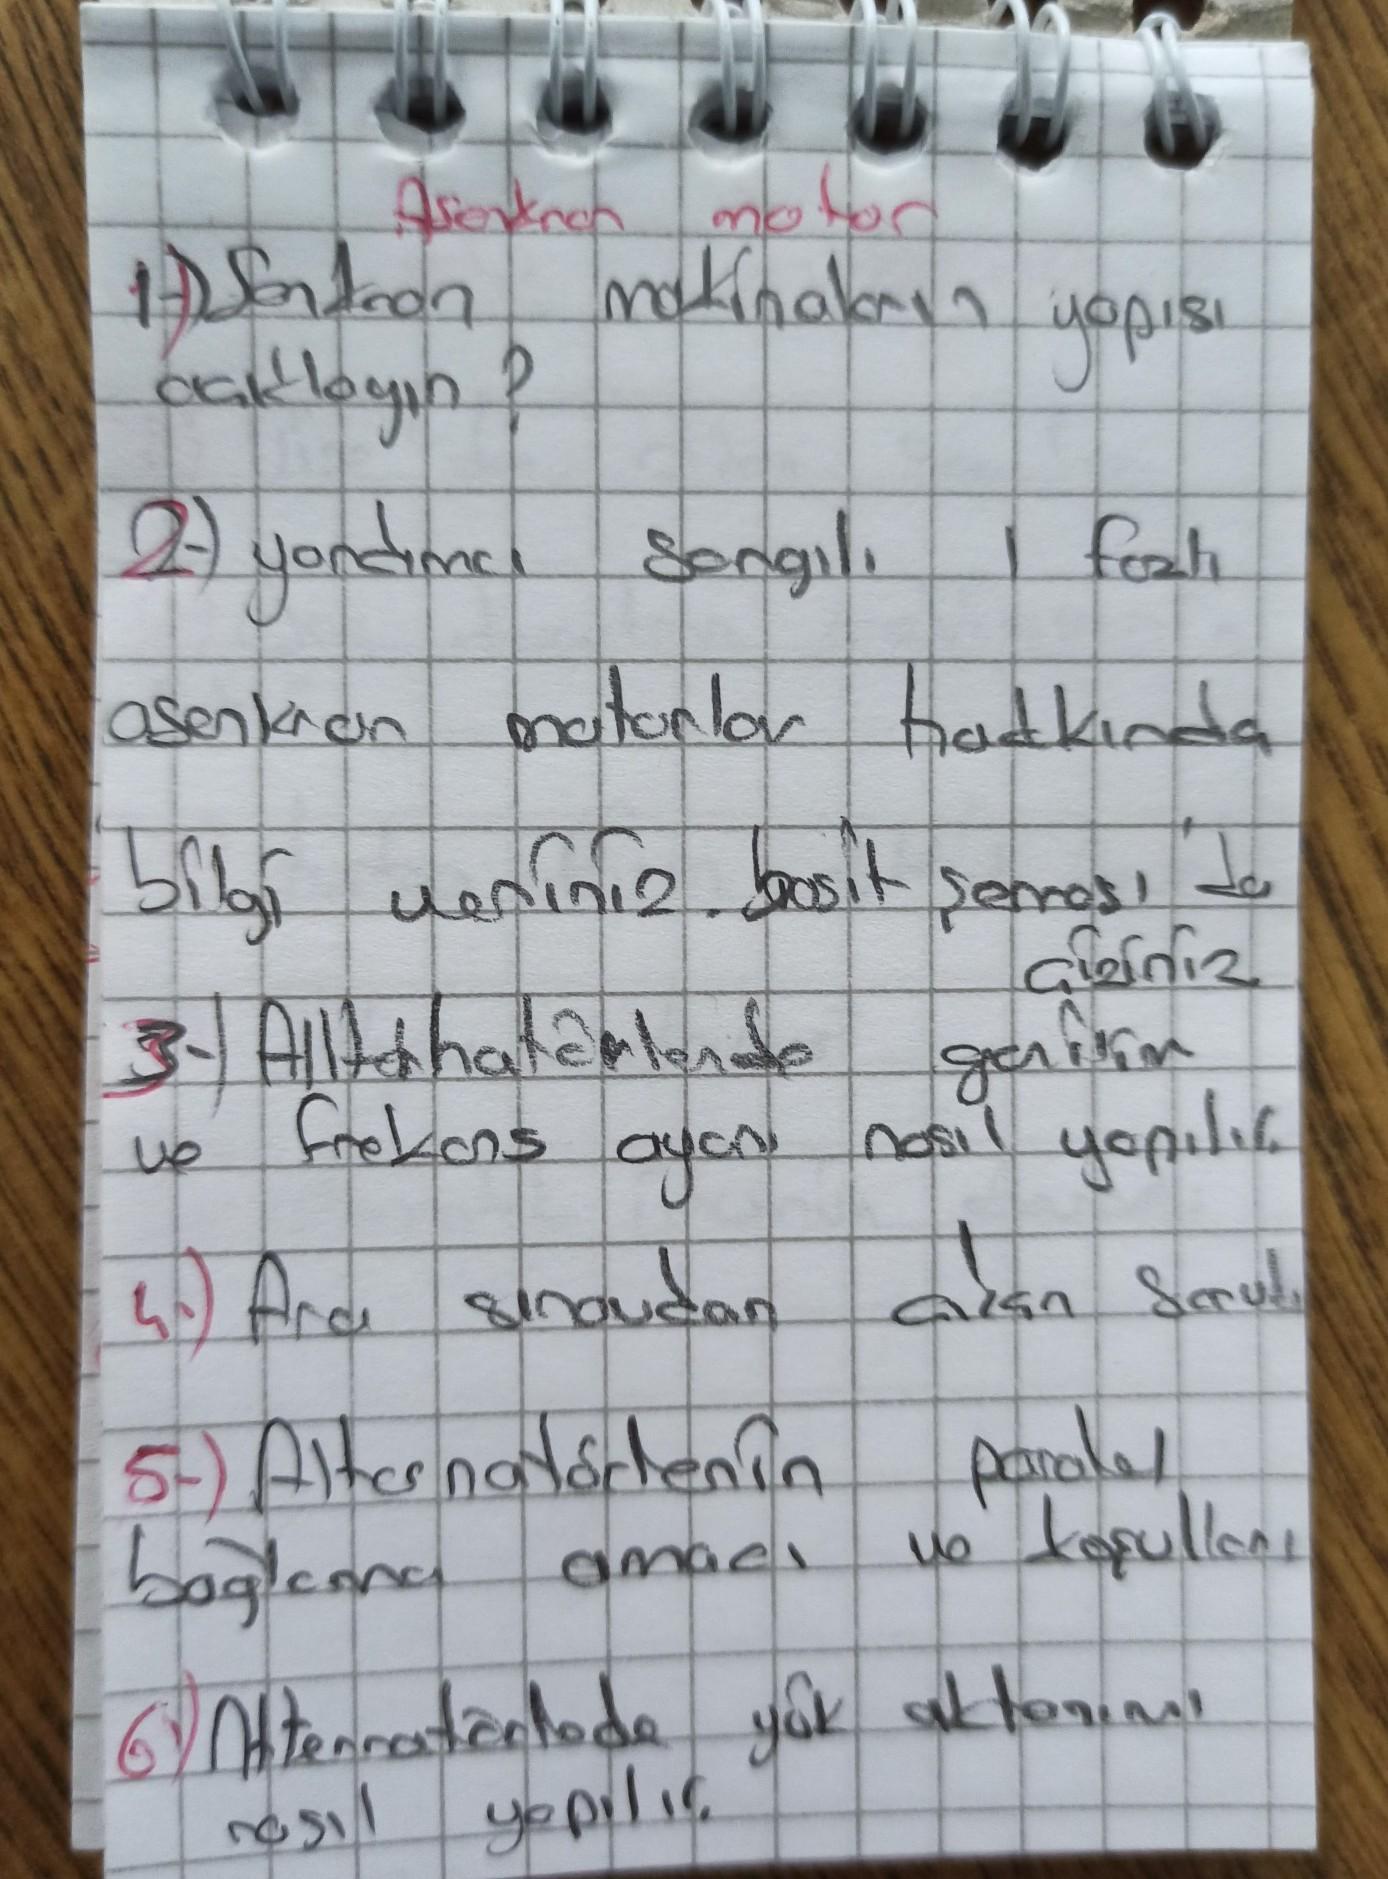 Asenkron motor
1-) Senkron makinaların yapısı
açıklayın?
2-) yardımcı sargılı 1 fazlı
asenkron motorlar hakkında
bilgi veriniz. basit şeması da
çiziniz
3-) Allternatörlerde gerilim
ve frekans ayarı nasıl yapılır.
4-) Ara sınavdan çıkan soru
5-) Alternatörlerin paralel
bağlanma amacı ve koşulları
6-) Alternatörlede yük aktarımı
nasıl yapılır.